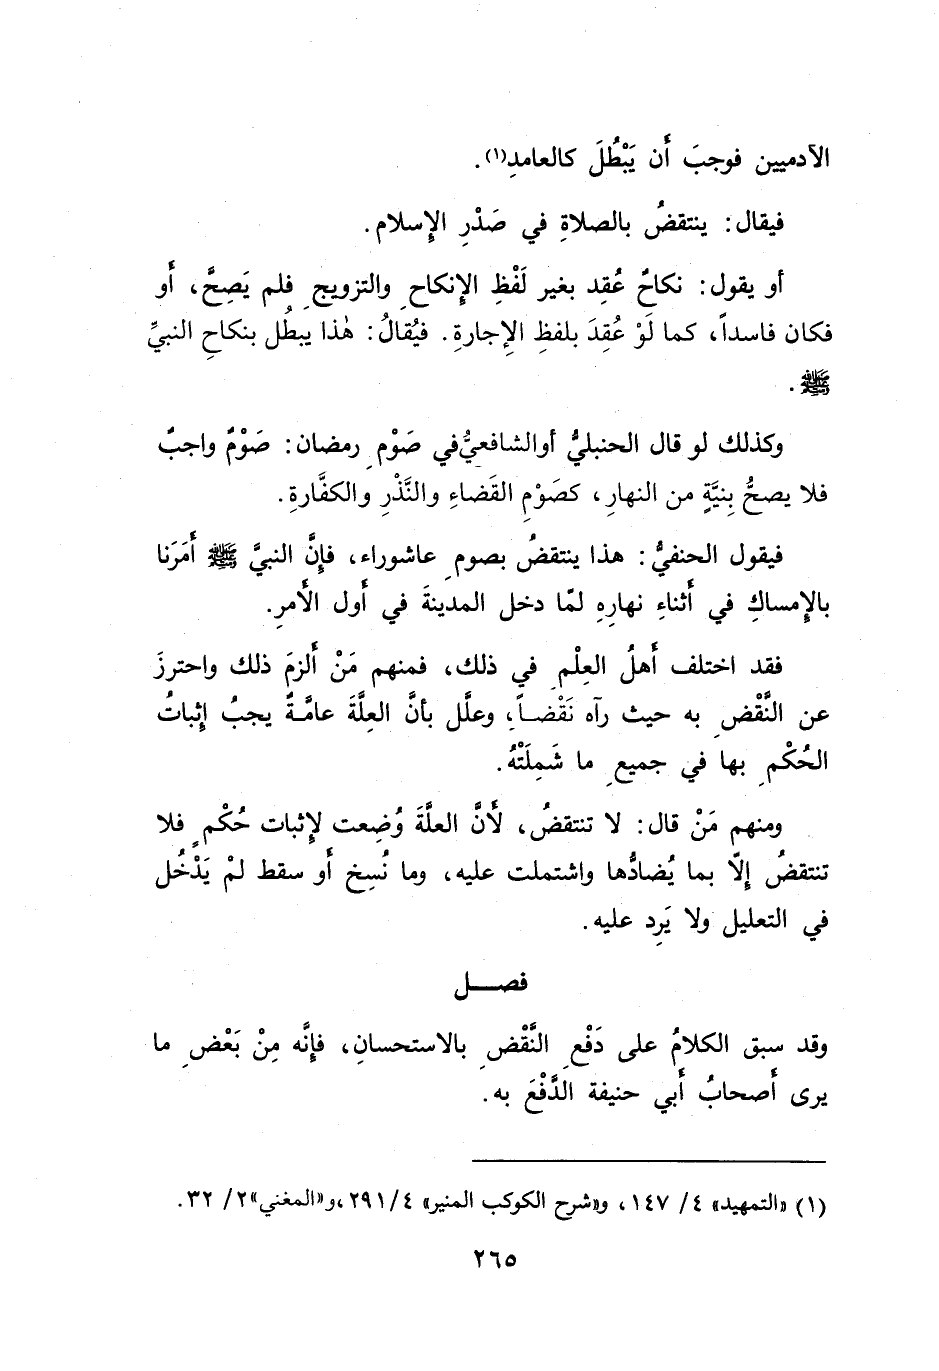 الآدميين فوجبَ أَن يَبْطُلَ كالعامدِ(١).
فيقال: ينتقضُ بالصلاةِ في صَدْرِ الإِسلام.
أو يقول: نكاحٌ عُقِد بغير لَفْظِ الإِنكاحِ والتزويجِ فلم يَصِحَّ، أَو
فكان فاسداً، كما لَوْ عُقِدَ بلفظِ الإِجارةِ. فيُقالُ: هٰذا يبطُل بنكاحِ النبيِّ
ﷺ.
وكذلك لو قال الحنبليُّ أوالشافعيُّ في صَوْمِ رمضان: صَوْمٌ واجبٌ
فلا يصحُّ بِنيَّةٍ من النهارِ، كصَوْمِ القَضاءِ والنَّذْرِ والكفَّارةِ.
فيقول الحنفيُّ: هذا ينتقضُ بصومِ عاشوراء، فإِنَّ النبيَّ ﷺ أَمَرَنا
بالإِمساكِ في أَثناءِ نهارِهِ لمّا دخل المدينةَ في أَول الأَمرِ.
فقد اختلف أَهلُ العِلْمِ في ذلك، فمنهم مَنْ أَلزمَ ذلك واحترزَ
عن النَّقْضِ به حيث رآه نَقْضاً، وعلَّل بأنَّ العِلَّةَ عامَّةٌ يجبُ إِثباتُ
الحُكْمِ بها في جميعِ ما شَمِلَتْهُ.
ومنهم مَنْ قال: لا تنتقضُ، لأَنَّ العلَّةَ وُضِعت لإِثبات حُكْمٍ فلا
تنتقضُ إِلّا بما يُضادُّها واشتملت عليه، وما نُسِخ أَو سقط لمْ يَدْخُل
في التعليل ولا يَرِد عليه.
فصل
وقد سبق الكلامُ على دَفْعِ النَّقْضِ بالاستحسانِ، فإِنَّه مِنْ بَعْضِ ما
يرى أَصحابُ أَبي حنيفة الدَّفْعَ به.
(١) «التمهيد» ٤/ ١٤٧، و«شرح الكوكب المنير» ٤/ ٢٩١،و«المغني»٢/ ٣٢.
٢٦٥